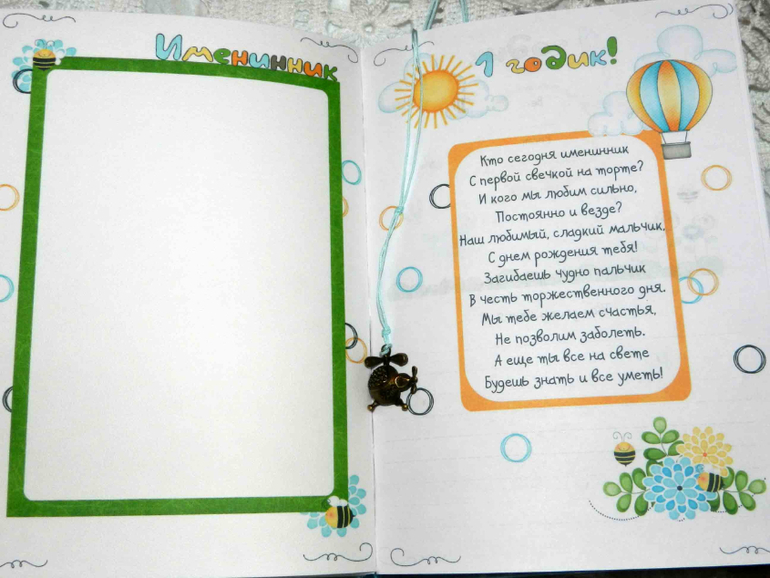 Именинник
1 годик!
Кто сегодня именинник
С первой свечкой на торте?
И кого мы любим сильно,
Постоянно и везде?
Наш любимый, сладкий мальчик,
С днем рождения тебя!
Загибаешь чудно пальчик
В честь торжественного дня.
Мы тебе желаем счастья,
Не позволим заболеть.
А еще ты все на свете
Будешь знать и все уметь!